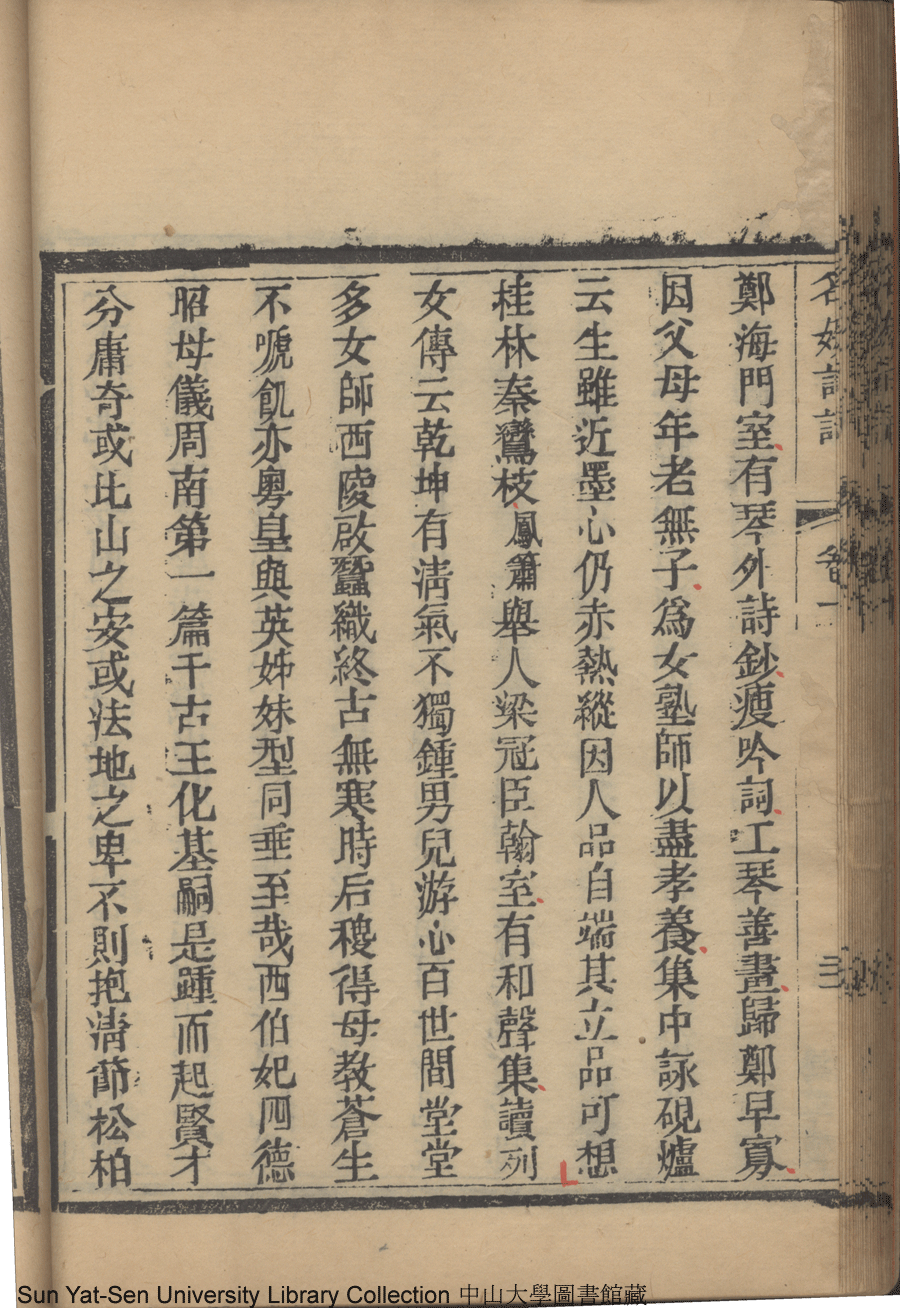 名媛詩話 卷一 三
鄭海門室有琴外詩鈔瘦吟詞工琴善畫歸鄭早寡
因父母年老無子為女塾師以盡孝養集中詠硯爐
云生雖近墨心仍赤熱縱因人品自端其立品可想
桂林秦鸞枝鳳簫舉人梁冠臣翰室有和聲集讀列
女傳云乾坤有淸氣不獨鍾男兒游心百世間堂堂
多女師西陵啟蠶織終古無寒時后稷得母教蒼生
不嗁飢亦粵皇與英姊妹型同垂至哉西伯妃四德
昭母儀周南第一篇千古王化基嗣是踵而起賢才
分庸奇或比山之安或法地之卑不則抱淸節松柏
Sun Yat-Sen University Library Collection 中山大學圖書館藏